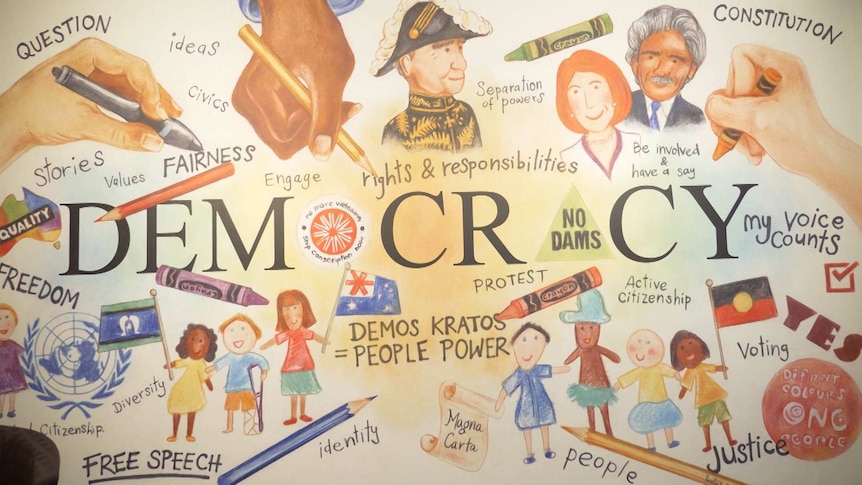 QUESTION
ideas
CONSTITUTION
Civics
Separation
of powers
crayon
stories
Values
FAIRNESS
Engage
rights & responsibilities
Be involved
&
have a say
EQUALITY
DEMOCRACY
no more vietnams
stop conscription now
NO
DAMS
my voice
counts
FREEDOM
crayon
PROTEST
crayon
Active
Citizenship
DEMOS KRATOS
= PEOPLE POWER
YES
Diversity
Voting
Citizenship
Magna
Carta
DIFRNT
COLOURS
ONE
PEOPLE
FREE SPEECH
identity
people
justice